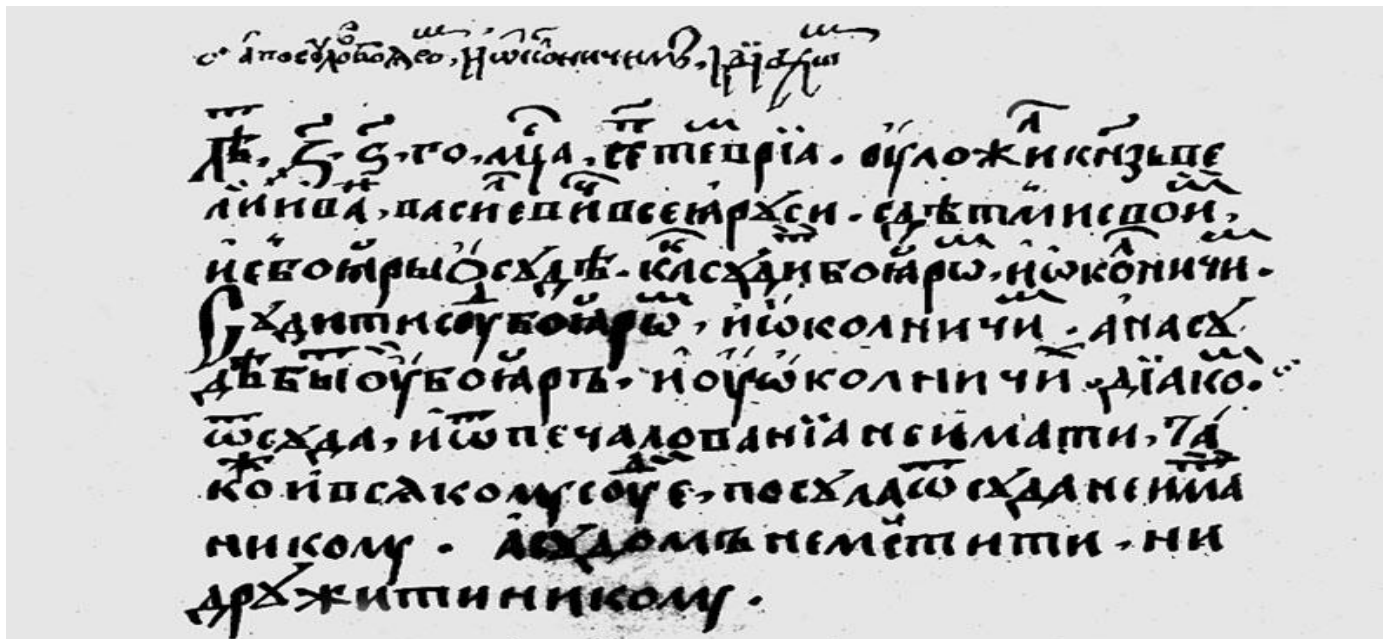 а посулов боꙗрѡⷨ, и ѡколничимъ, и дїакѡⷨ
Лѣⷮ, ҂з҃. ѕ҃. го, мцⷭ҇а, сеⷫтевріа. оуложиⷧ кнѧзь ве
ликїи иваⷩ, васиⷧевиⷱ всеꙗ рꙋси. с дѣтми свои‌ⷨ,
и с боꙗры ѡ сꙋдѣ. каⷦ сꙋдиⷮ боꙗрѡⷨ, и ѡкоⷧничиⷨ.
Сꙋдити сꙋⷣ боꙗрѡⷨ, и ѡколничиⷨ. а на сꙋ
дѣ быⷮ оу боꙗръ, и оу ѡколничиⷯ дїакоⷨ.
ѿ сꙋда, и ѿ печалованїа не имати, та
коⷤ и всѧкому соуⷣе, посꙋла ѿ сꙋда не имаⷮ
никому. а сꙋдомъ не мстити, ни
дрꙋжити никому.